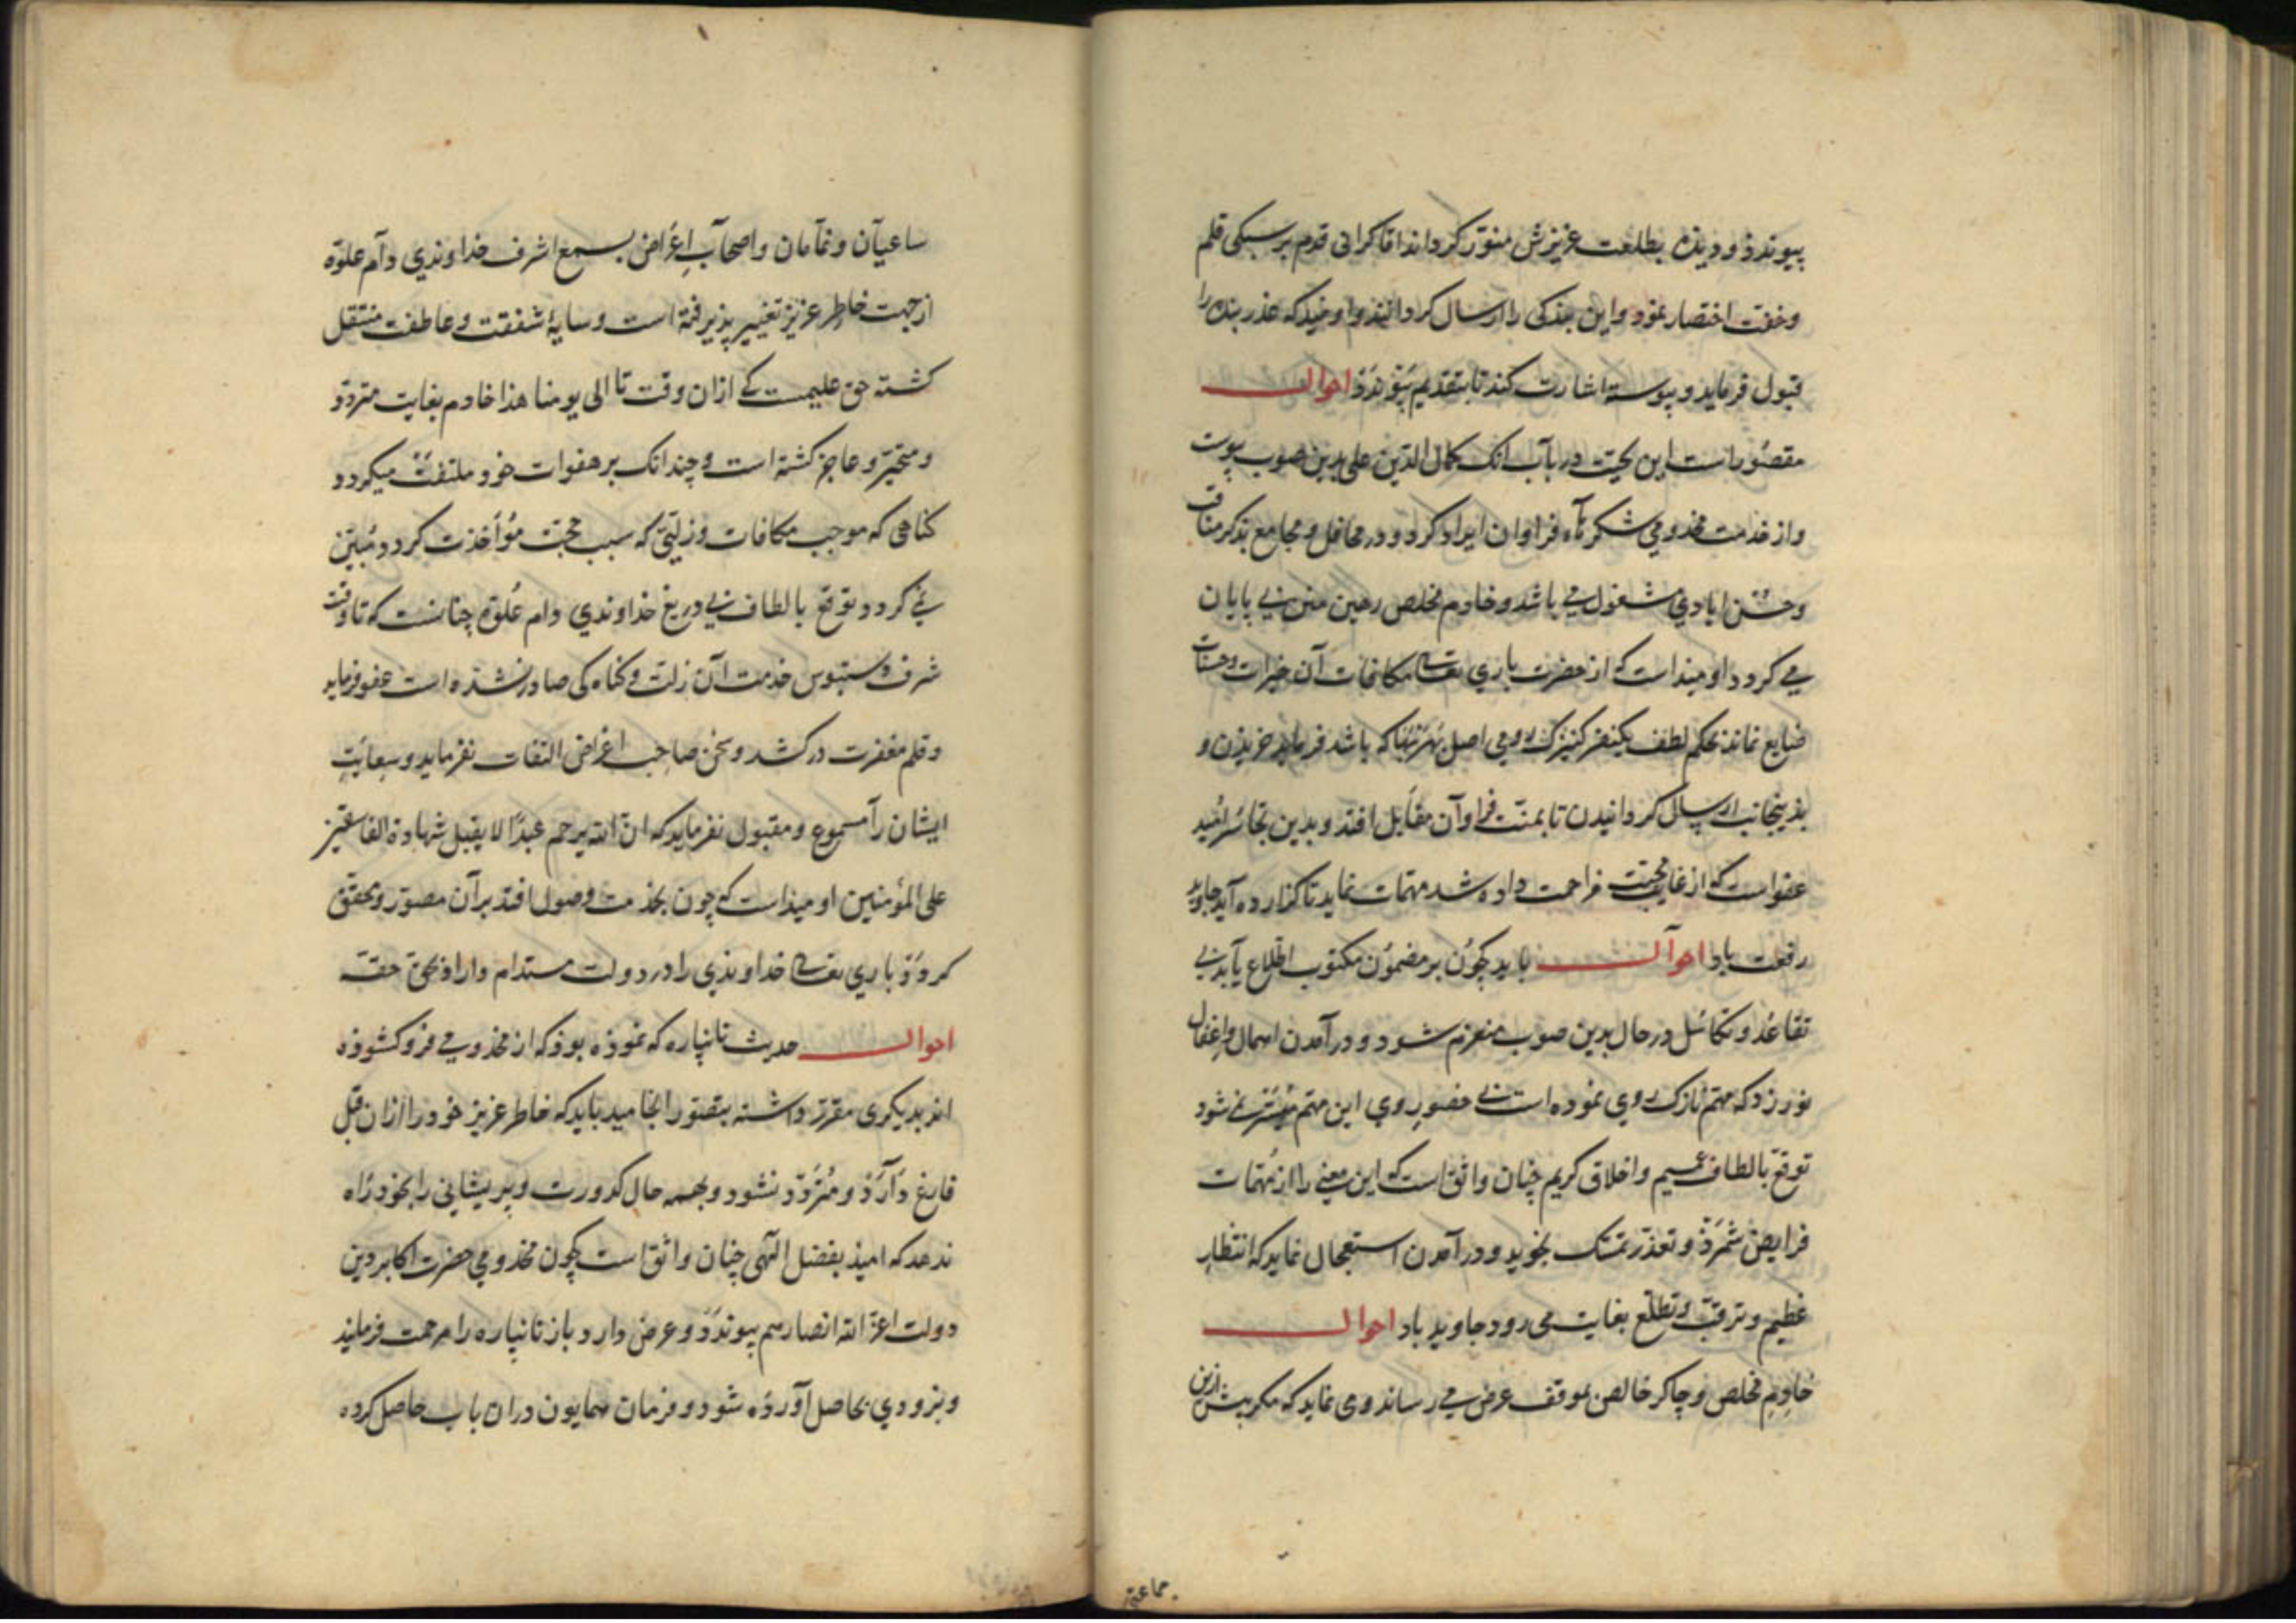 پیوندذ و دیذه بطلعت عزیزش منوّر کرداند اما کرانی قدم بر سبکی قلم
وخفت اختصار نمود و این بندکی را ارسال کردانند و اومیدکه عذر بنده را
قبول فرماید و پیوسته اشارت کند تا بتقدیم پَیوندَذ احوال
مقصُور است این تحیّت در بآب انک کمال الدّین علی بدین صوب پیوست
واز خدمت مخدومی شکرهآء فراوان ایراد کرد و در محافل و مجامع بذکر مناقب
وحُسْن ایادی مشغول می باشد و خادم مخلص رهین منن بی پایان
می کردد اومیذ است که از حضرت باری تعالی مکافات آن خیرات وحسنات
ضایع نماند بحکم لطف یکنفر کنیزک رومی اصل بهر بها که باشد فرماید خریذن و
بذینجانب ارسال کردانیدن تا بمنّت فراوآن مقابل افتد و بدین تجاسُر امّید
عفو است که از غایت محبّت مزاحمت داده شد مهمّات نماید تا کذارده آید جاوید
رفعت باد احوآل باید کچوُن بر مضموُن مکتوب اطّلاع یآبد بی
تقاعُد و تکاسُل در حال بدین صوب منعزم شود و در آمدن اهمال واغفال
نورزد که مهمّ نازک روی نموده است بی حضور وی این مهمّ میُسّر نمی شود
توقع بالطاف عمیم و اخلاق کریم چنان واثق است که این معنی را از مُهمّات
فرایض شمَرَد و تعذّر تمسّک نجوید و در آمدن استعجال نماید که انتظار
عظیم و ترقّب و تطلّع بغایت می رود جاوید باد احوال
خادِم مخلص و چاکر خالص بموقف عرض می رساند و می نماید که مکر پیش ازین
جماعتی
ساعیآن و نمّآمان و اصحآبِ اغراض بسمع اشرف خداوندی دآم علوّه
از جهت خاطر عزیز تغییر پذیرفته است و سایۀ شفقت و عاطفت منتقل
کشته حق علیمست کی ازان وقت تا الی یومنا هذا خادم بغایت متردّد
و متحیّر و عاجز کشته است و چندانک بر هفوات خود ملتفت میکردد
کناهی که موجب مکافات و زلّتی که سبب حجّت مؤاخذت کردد مُبیّن
نمی کردد و توقّع بالطاف بی دریغ خداوندی دام عُلوّه چنانست که تا وقت
شرف دستبوس خدمت آن زلت و کناه کی صادر نشذه است عفو فرماید
و قلم مغفرت درکشد و سخن صاحب اغراض التفات نفرماید و سعایتِ
ایشان رآ مسموع و مقبول نفرماید که انّ الله یرحم عبدًا لا یقبل شهادة الفاسقین
علی المؤمنین اومیذ است که چون بخذمت وصول افتد برآن مصوّر و محقّق
کردَد باری تعالی خداوندی را در دولت مستدام داراد بحقّ حقّه
احوال حدیث نانپاره که نموذه بوذ که از مخدومی فرو کشوذه
اند بدیکری مقرّر داشته بتصوّر انجامید باید که خاطر عزیز خود را ازان قبل
فارغ دآرَدْ و مُترَدّد نشود و بهمه حال کدورت و پریشانی را بخود رَاه
ندهد که امیذ بفضل الٓهی چنان واثق است کچون مخدومی حضرت اکابر دین
دولت اعزّ الله انصارهم پیوندَد و عرض دارد باز نانپاره را مرحمت فرمایند
و بزودی بحاصل آورده شود و فرمان همایون دران باب حاصل کرده